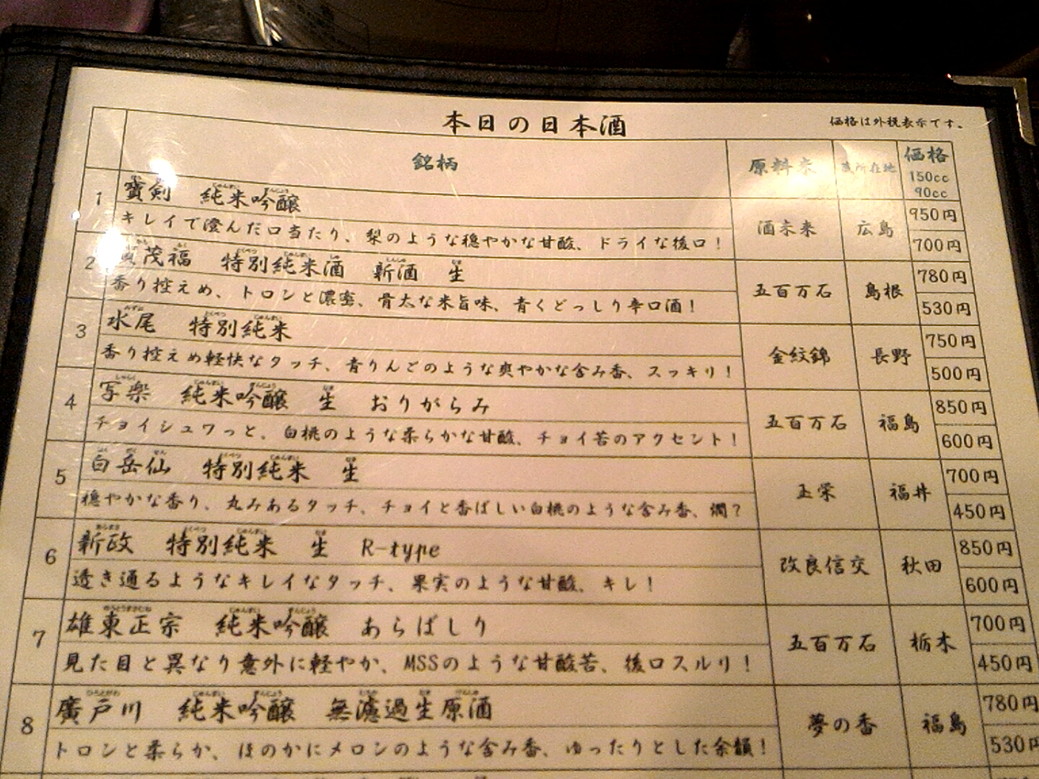 本日の日本酒
価格は外税表示です。
銘柄 原料米 蔵所在地 価格 150cc 90cc
1 寳剣 純米吟醸 酒未来 広島 950円 700円
キレイで澄んだ口当たり、梨のような穏やかな甘酸、ドライな後口!
2 茂福 特別純米酒 新酒 生 五百万石 島根 780円 530円
香り控えめ、トロンと濃密、骨太な米旨味、青くどっしり辛口酒!
3 水尾 特別純米 金紋錦 長野 750円 500円
香り控えめ軽快なタッチ、青りんごのような爽やかな含み香、スッキリ!
4 写楽 純米吟醸 生 おりがらみ 五百万石 福島 850円 600円
チョイシュワっと、白桃のような柔らかな甘酸、チョイ苦のアクセント!
5 白岳仙 特別純米 生 玉栄 福井 700円 450円
穏やかな香り、丸みあるタッチ、チョイと香ばしい白桃のような含み香、燗?
6 新政 特別純米 生 R-type 改良信交 秋田 850円 600円
透き通るようなキレイなタッチ、果実のような甘酸、キレ!
7 雄東正宗 純米吟醸 あらばしり 五百万石 栃木 700円 450円
見た目と異なり意外に軽やか、MSSのような甘酸苦、後口スルリ!
8 廣戸川 純米吟醸 無濾過生原酒 夢の香 福島 780円 530円
トロンと柔らか、ほのかにメロンのような含み香、ゆったりとした余韻!